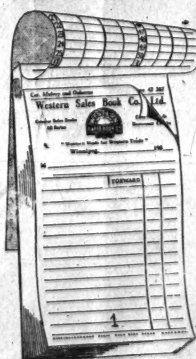 Cor. Mulvey and Osborne
Western Sales Book Co. Ltd.
Counter Sales Books
All Sorts
"Western Made for Western Trade"
Winnipeg, 192
M
Forward
1